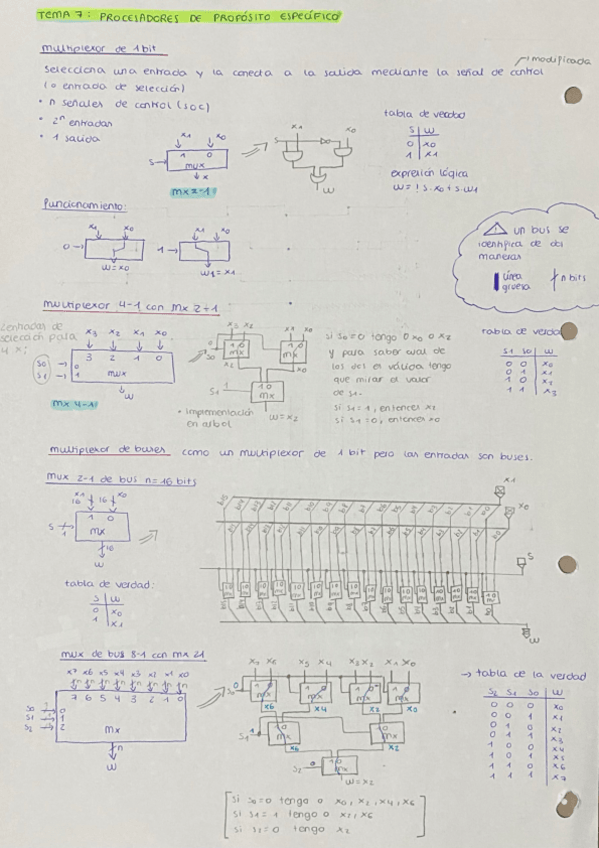 TEMA 7: PROCESADORES DE PROPÓSITO ESPECÍFICO
multiplexor de 1 bit
modificada
selecciona una entrada y la conecta a la salida mediante la señal de control
(o entrada de selección)
• n señales de control (SOC)
• 2ⁿ entradas
• 1 salida
x1 x0
1 0
S
mux
x
mx 2-1
S
x1 x0
w
tabla de verdad
S w
0 x0
1 x1
expresión lógica
w = !s·x0 + s·w1
Funcionamiento:
x1 x0
0
w=x0
x1 x0
1
w1=x1
un bus se
identifica de dos
maneras
línea
gruesa
n bits
multiplexor 4-1 con mx 2-1
entradas de
selección para
x3 x2 x1 x0
3 2 1 0
S0 0
S1 1
mux
w
mx 4-1
x3 x2 x1 x0
S0
1 0 1 0
mx mx
x2 x0
S1
1 0
mx
w=x2
• Implementación
en arbol
si s0=0 tengo o x0 o x2
y para saber cual de
los dos es válida tengo
que mirar el valor
de s1.
si s1=1, entonces x2
si s1=0, entonces x0
tabla de verdad
S1 S0 w
0 0 x0
0 1 x1
1 0 x2
1 1 x3
multiplexor de buses como un multiplexor de 1 bit pero las entradas son buses.
mux 2-1 de bus n=16 bits
x1 16 16 x0
1 0
S 1
mx
16
w
x1
x0
S
w
tabla de verdad:
S w
0 x0
1 x1
mux de bus 8-1 con mx 2-1
x7 x6 x5 x4 x3 x2 x1 x0
n n n n n n n n
7 6 5 4 3 2 1 0
S0 0
S1 1
S2 2
mx
n
w
x7 x6 x5 x4 x3 x2 x1 x0
S0
mx mx mx mx
x6 x4 x2 x0
S1
mx mx
x6 x2
S2
mx
w=x2
→ tabla de la verdad
S2 S1 S0 w
0 0 0 x0
0 0 1 x1
0 1 0 x2
0 1 1 x3
1 0 0 x4
1 0 1 x5
1 1 0 x6
1 1 1 x7
si s0=0 tengo o x0, x2, x4, x6
si s1=1 tengo o x2, x6
si s2=0 tengo x2